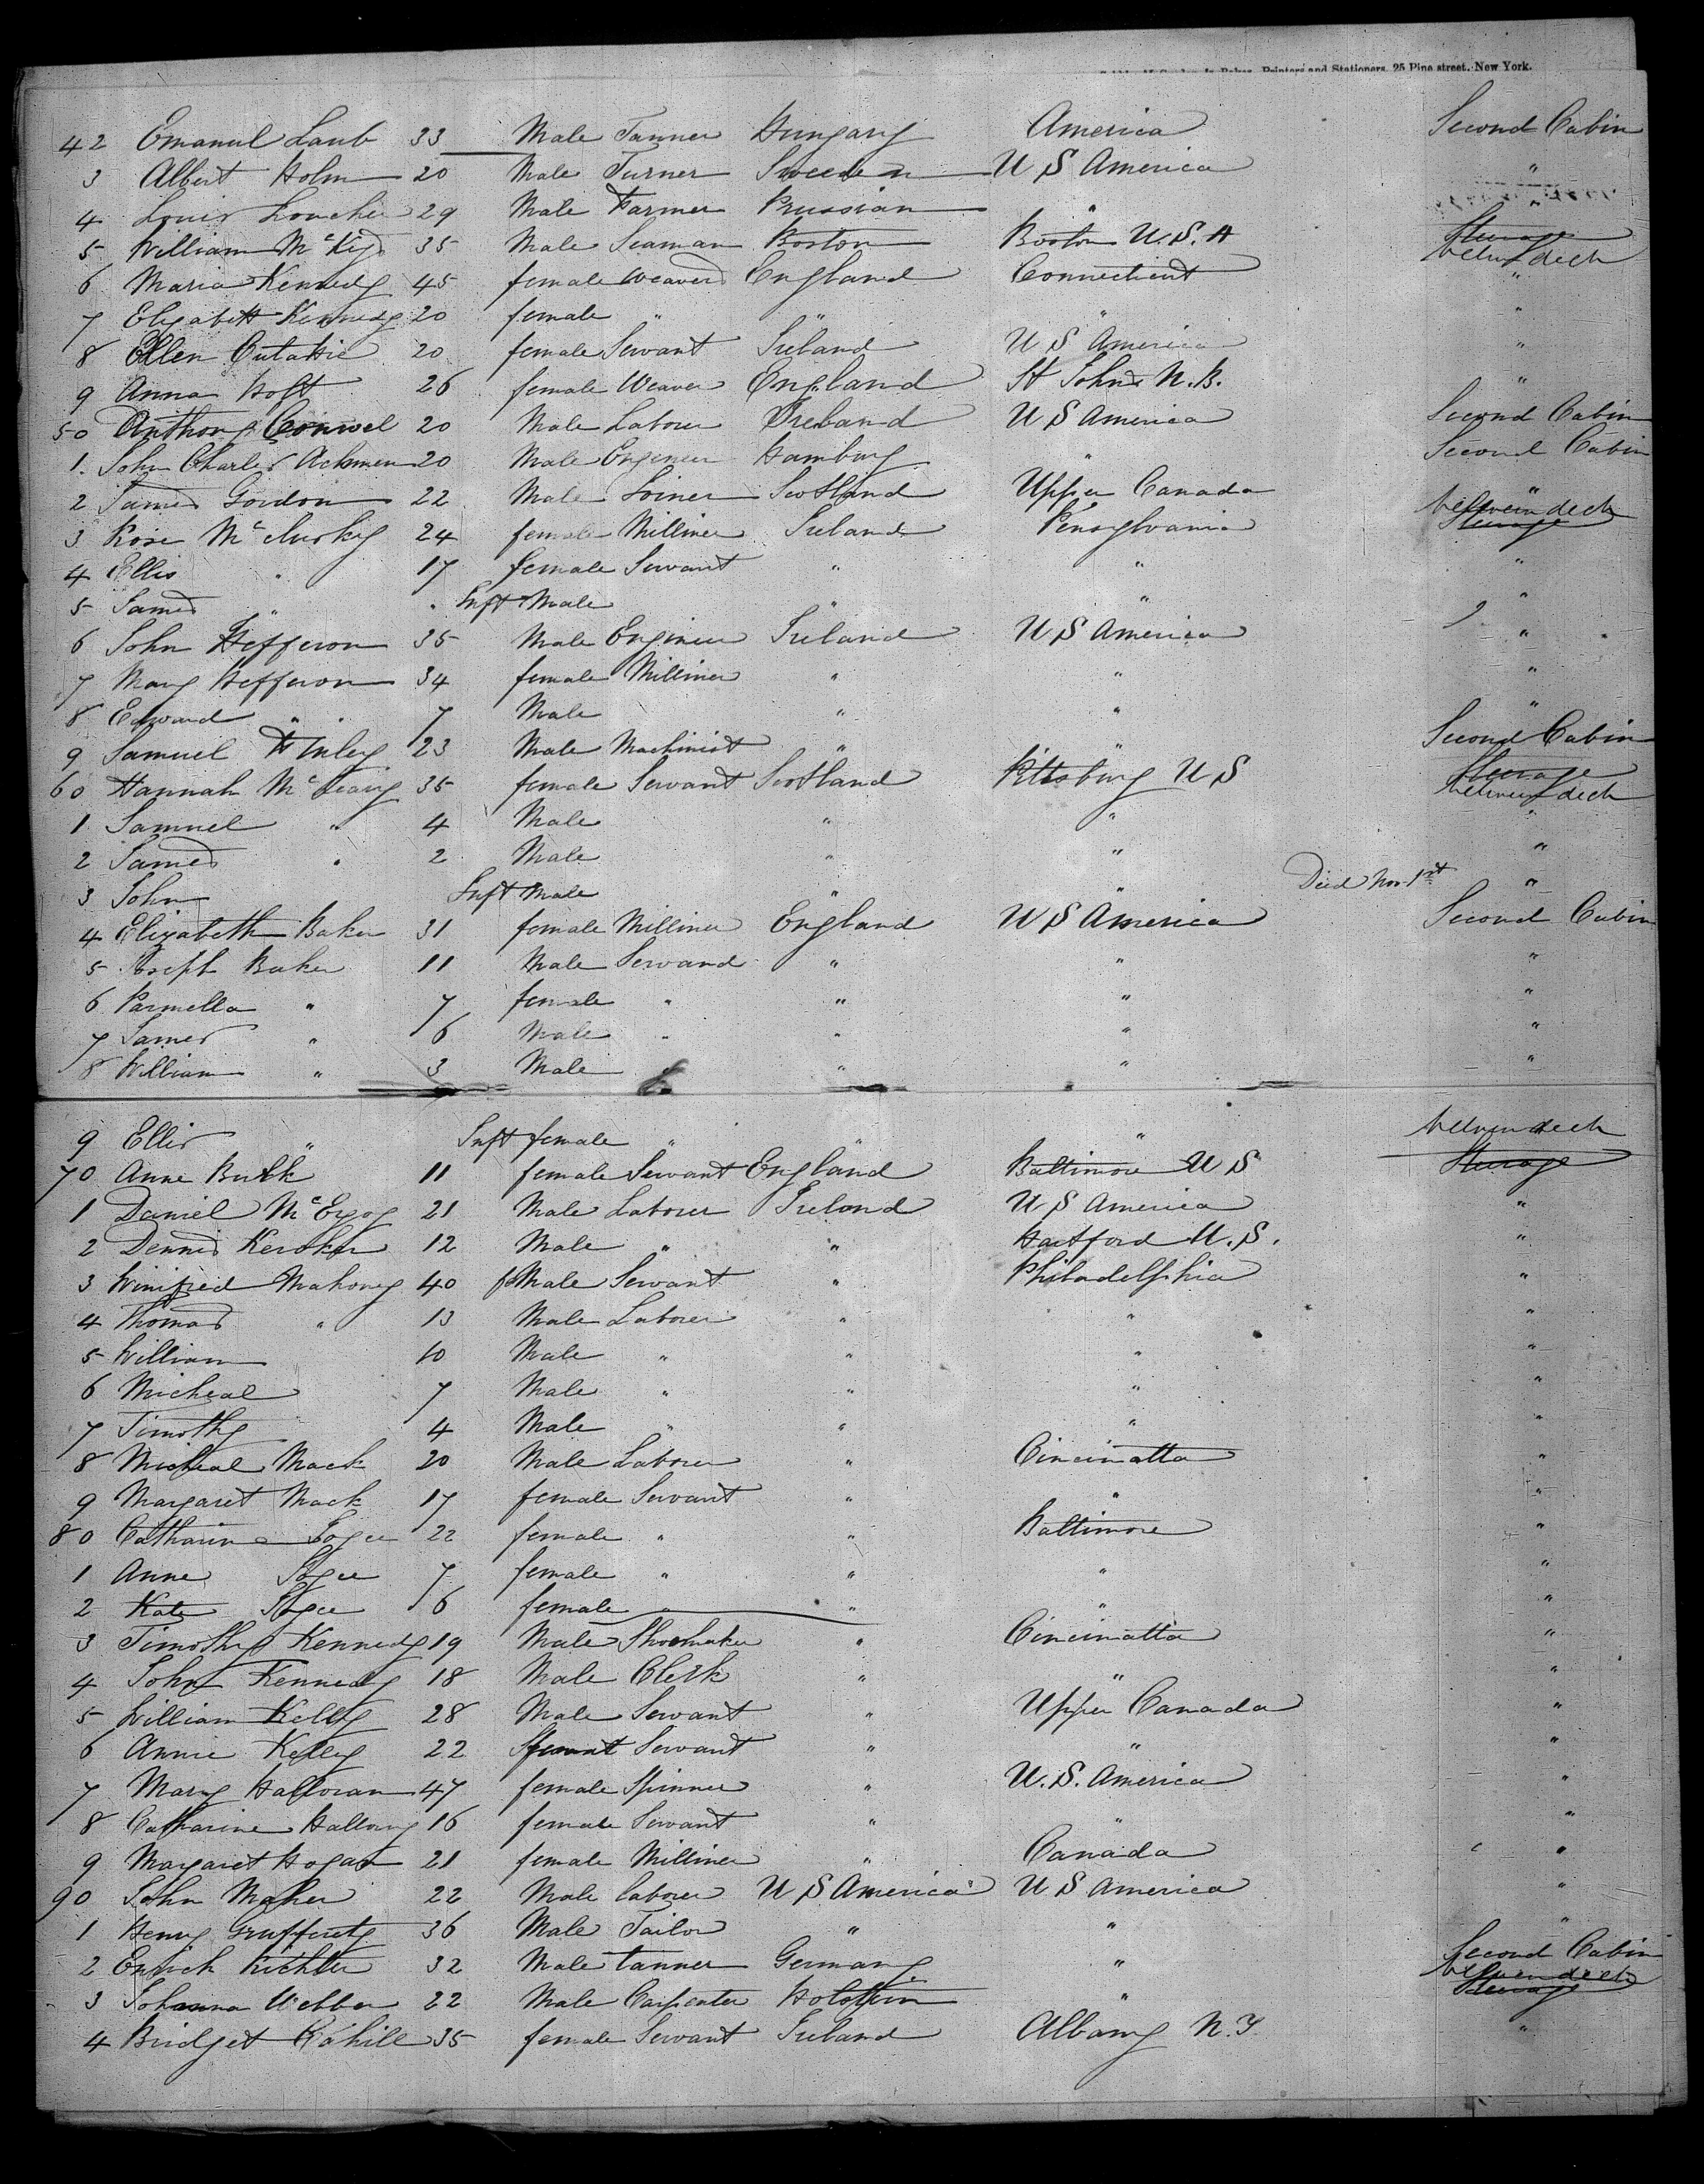 Printers and Stationers, 25 Pine street, New York.
42 Emanuel Laub 33 Male Tanner Hungary America Second Cabin
3 Albert Holm 20 Male Turner Sweden U S America "
4 Louis 29 Male Farmer Prussian " "
5 William Mc 35 Male Seaman Boston Boston U.S.A Steerage
between deck
6 Maria Kennedy 45 female Weaver England Connecticut "
7 Elizabeth Kennedy 20 female " " " "
8 Ellen 20 female Servant Ireland U S America "
9 Anna Hoft 26 female Weaver England St Johns N.B. "
50 Anthony Conwel 20 Male Labourer Ireland U S America Second Cabin
1. John Charles Achmen 20 Male Engineer Hamburg " Second Cabin
2 James Gordon 22 Male Joiner Scotland Upper Canada "
between deck
3 Rose Mc Clusky 24 female Milliner Ireland Pensylvania Steerage
4 Ellis " 17 female Servant " " "
5 James " Inft Male " " "
6 John Hefferon 35 Male Engineer Ireland U S America "
7 Mary Hefferon 34 female Milliner " " "
8 Edward " 7 Male " " "
9 Samuel Finley 23 Male Machinist " " Second Cabin
60 Hannah Mc 35 female Servant Scotland Pittsburg U S Steerage
between deck
1 Samuel " 4 Male " " "
2 James " 2 Male " " "
3 John Inft Male " " Died Nov 1st "
4 Elizabeth Baker 31 female Milliner England U S America Second Cabin
5 Joseph Baker 11 Male Servand " " "
6 Parmella " 7 female " " " "
7 James " 6 Male " " " "
8 William " 3 Male " " " "
9 Ellis " Inft female " " " between deck
70 Anne Burk 11 female Servant England Baltimore U S Steerage
1 Daniel Mc 21 Male Laborer Ireland U S America "
2 Dennis 12 Male " " Hartford U.S. "
3 Winifred Mahoney 40 feMale Servant " Philadelphia "
4 Thomas " 13 Male Laborer " " "
5 William 10 Male " " " "
6 Micheal 7 Male " " " "
7 Timothy 4 Male " " " "
8 Micheal Mack 20 Male Laborer " Cincinatta "
9 Margaret Mack 17 female Servant " " "
80 Catharine 22 female " " Baltimore "
1 Anne 7 female " " " "
2 Kate 6 female " " " "
3 Timothy Kennedy 19 Male Shoemaker " Cincinatta "
4 John Kennedy 18 Male Clerk " " "
5 William Kelly 28 Male Servant " Upper Canada "
6 Annie Kelly 22 Servant " " "
7 Mary Halloran 47 female Spinner " U.S. America "
8 Catharine 16 female Servant " " "
9 Margaret Hogan 21 female Milliner " Canada "
90 John Maher 22 Male laborer U S America U S America "
1 Henry 36 Male Tailor " " "
2 Richter 32 Male tanner Germany " Second Cabin
between deck
3 Johanna Webber 22 Male Carpenter Holstein " Steerage
4 Bridget Cahill 35 female Servant Ireland Albany N.Y. "